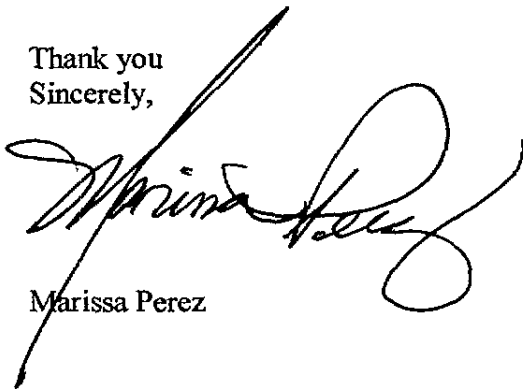 Thank you
Sincerely,
Marissa Perez
Marissa Perez